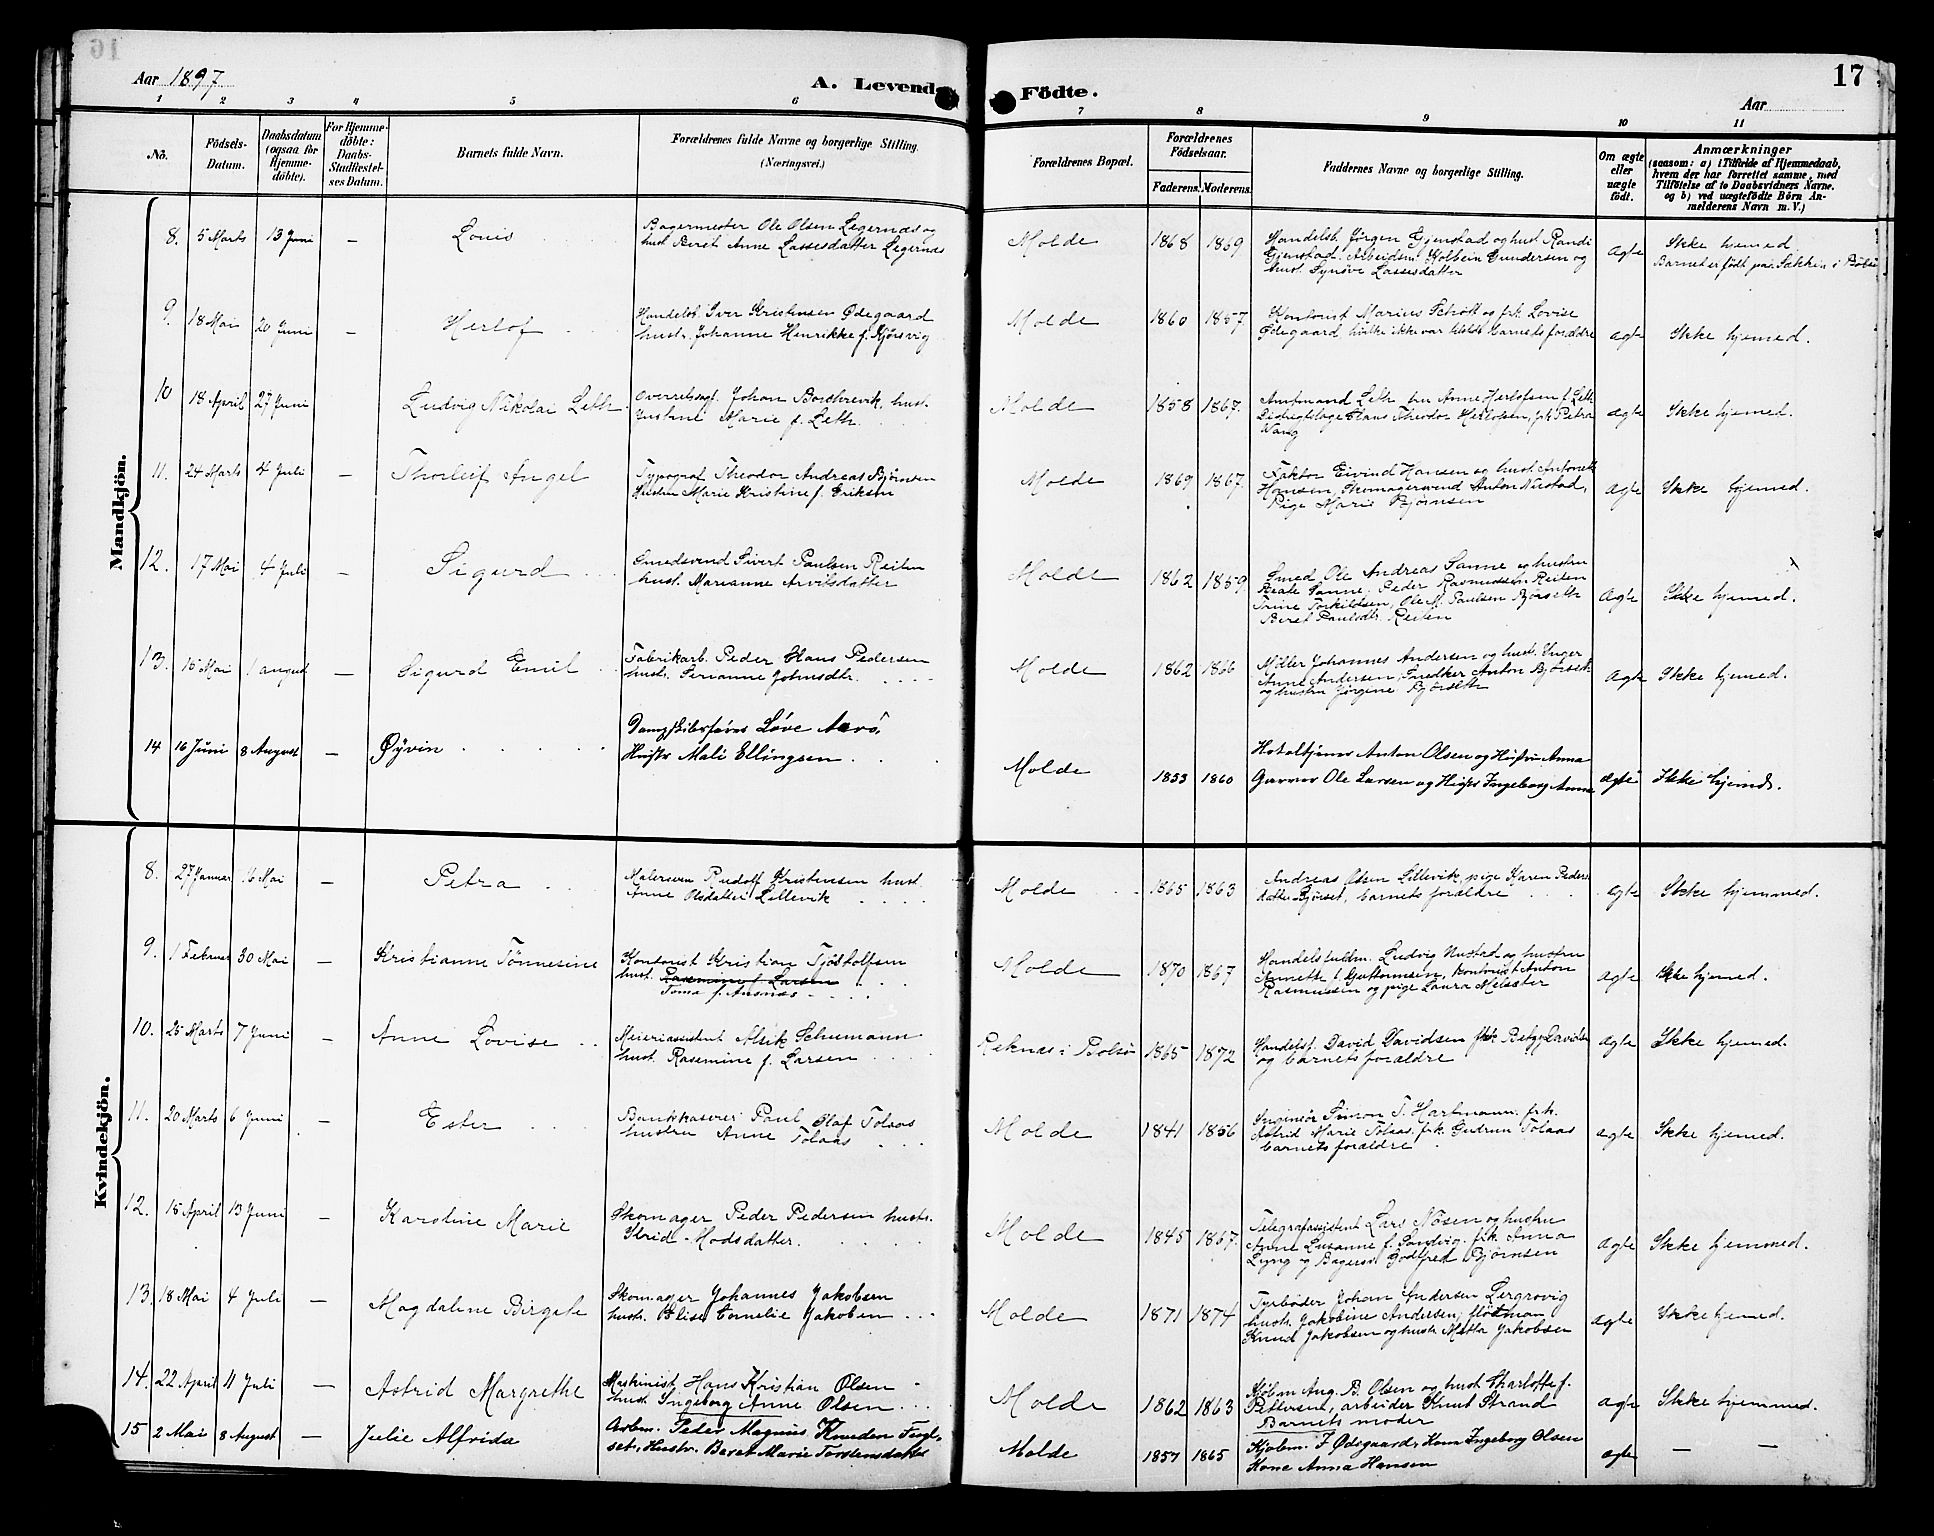 Aar 1897
A. Levende Födte.
17
Aar
1 2 3 4 5 6 7 8 9 10 11
No. | Födsels-Datum. | Daabsdatum (ogsaa for Hjemme-döbte). | For Hjemme-döbte: Daabs-Stadfæstel-ses Datum. | Barnets fulde Navn. | Forældrenes fulde Navne og borgerlige Stilling. (Næringsvei.) | Forældrenes Bopæl. | Forældrenes Födselsaar. Faderens. Moderens. | Faddernes Navne og borgerlige Stilling. | Om ægte eller uægte födt. | Anmærkninger (saasom: a) i Tilfælde af Hjemmedaab, hvem der har forrettet samme, med Tilföielse af to Daabsvidners Navne. og b) ved uægtefödte Börn An-melderens Navn m. V.)
Mandkjön.
8. 5 Marts 13 Juni — Louis Bagermester Ole Olsen Legernæs og
hust. Beret Anne Lassesdatter Legernæs
Molde 1868 1869 Handelsb. Jörgen Gjenstad og hust. Randi
Gjenstad. Arbeidsm. Kolbein Gundersen og
hust. Synöve Lassesdatter
ægte Ikke hjemed.
Barnet er födt paa Sekken i Bolsö
9. 18 Mai 20 Juni — Herlof Handelsb. Iver Kristensen Ødegaard
hustr. Johanne Henrikke f. Kjørsvig
Molde 1860 1857. Kontorist Marius Schött og frk. Lovise
Ødegaard, hvilke ikke var tilstde barnets forældre
ægte Ikke hjemed.
10 18 April 27 Juni Ludvig Nikolai Leth Overretssagf. Johan Borchrevik, hust.
Justine Marie f. Leth.
Molde 1858 1867. Amtmand Leth, fru Anne Herlofsen f. Leth
Distrigtslæge Claus Theodor Herlofsen, frk. Petra
Wang
ægte Ikke hjemed.
11. 24 Marts 4 Juli — Thorleif Angel Typograf Theodor Andreas Bjørnsen
Hustru Marie Kristine f. Eriksen
Molde 1869 1867. Faktor Eivind Hansen og hust. Antonette
Hansen, Skomagersvend Anton Nustad,
Pige Marie Bjørnsen
ægte Ikke hjemed.
12. 17 Mai 4 Juli — Sigurd Smedsvend Sivert Paulsen Reiten
hust. Marianne Arvilsdatter
Molde 1862 1859. Smed Ole Andreas Sanne og hustru
Beate Sanne; Peder Rasmussen Reiten
Trine Torkildsen, Ole M. Paulsen Bjørseth
Beret Paulsdtr. Reiten
ægte Ikke hjemed.
13. 15 Mai 1 august — Sigurd Emil Fabrikarb. Peder Hans Pedersen
hust. Serianne Johnsdtr.
Molde 1862 1866 Möller Johannes Andersen og hust. Inger
Anne Andersen, Snedker Anton Bjørseth
og hustru Jörgine Bjørseth
ægte Ikke hjemed.
14 16 Juni 8 August — Øyvin Løve Aarø,
Hustr Mali Ellingsen
Molde 1853 1860 Hotelltjener Anton Olsen og Hustru Anna
Garver Ole Larsen og Hustr Ingeborg Anna
ægte Ikke hjemd.
Kvindekjön.
8. 27 Januar 16 Mai — Petra Malersven Rudolf Kristensen hust.
Anne Olsdatter Lillevik
Molde 1865 1863 Andreas Olsen Lillevik, pige Karen Peders
datter Bjørset, barnets forældre
ægte Ikke hjemmed.
9. 1 Februar 30 Mai — Kristianne Tönnesine Kontorist Kristian Tjöstolfsen
hust. Rasmine f. Larsen
Toma f. Aasnæs
Molde 1870 1867 Handelsfuldm. Ludvig Nustad og hustru
Annette f. Guttormsen, kontorist Anton
Rasmussen og pige Laura Melseter
ægte Ikke hjemed.
10. 25 Marts 7 Juni — Anne Lovise Meieriassistent Alrik Schumann
hust. Rasemine f. Larsen
Reknæs i Bolsö 1865 1872 Handelsf. David Davidsen frk. Betzy Davidsen
og barnets forældre
ægte Ikke hjemed.
11. 20 Marts 6 Juni — Ester Bankkaserer Paul Olaf Tolaas
hustru Anne Tolaas
Molde 1841 1856 Ingeniör Simon T. Hartmann. frk.
Astrid Marie Tolaas. frk. Gudrun Tolaas
barnets forældre
ægte Ikke hjemed.
12. 15 April 13 Juni — Karoline Marie Skomager Peder Pedersen hustr.
Strid Modsdatter.
Molde 1845 1867. Telegrafassistent Lars Nösen og hustru
Anne Susanne f. Sandvig. frk. Anna
Lyng og Bagersv. Godtfred Bjørnsen
ægte Ikke hjemmed.
13. 18 Mai 4 Juli — Magdalene Birgete Skomager Johannes Jakobsen
hust. Elise Cornelie Jakobsen
Molde 1871 1874 Fyrböder Johan Andersen Lergrovig
hust. Jakobine Andersen, Slötman
Knud Jakobsen og hustr. Metta Jakobsen
ægte Ikke hjemed.
14. 22 April 11 Juli — Astrid Margrethe Maskinist Hans Kristian Olsen
hust. Ingeborg Anne Olsen
Molde 1862 1863 Kjöbm. Aug. B. Olsen og hust. Charlotte f.
Pettersen, arbeider Knut Strand
Barnets moder
ægte Ikke hjemmed.
15 2 Mai 8 August — Julie Alfride Arbm. Peder Magnus Knudsen Fugl-
set, Hustr. Beret Marie Torstensdatter
Molde 1857 1865 Kjøbm. I Ødegaard, Kone Ingeborg Olsen
Kone Anna Hansen
ægte — —